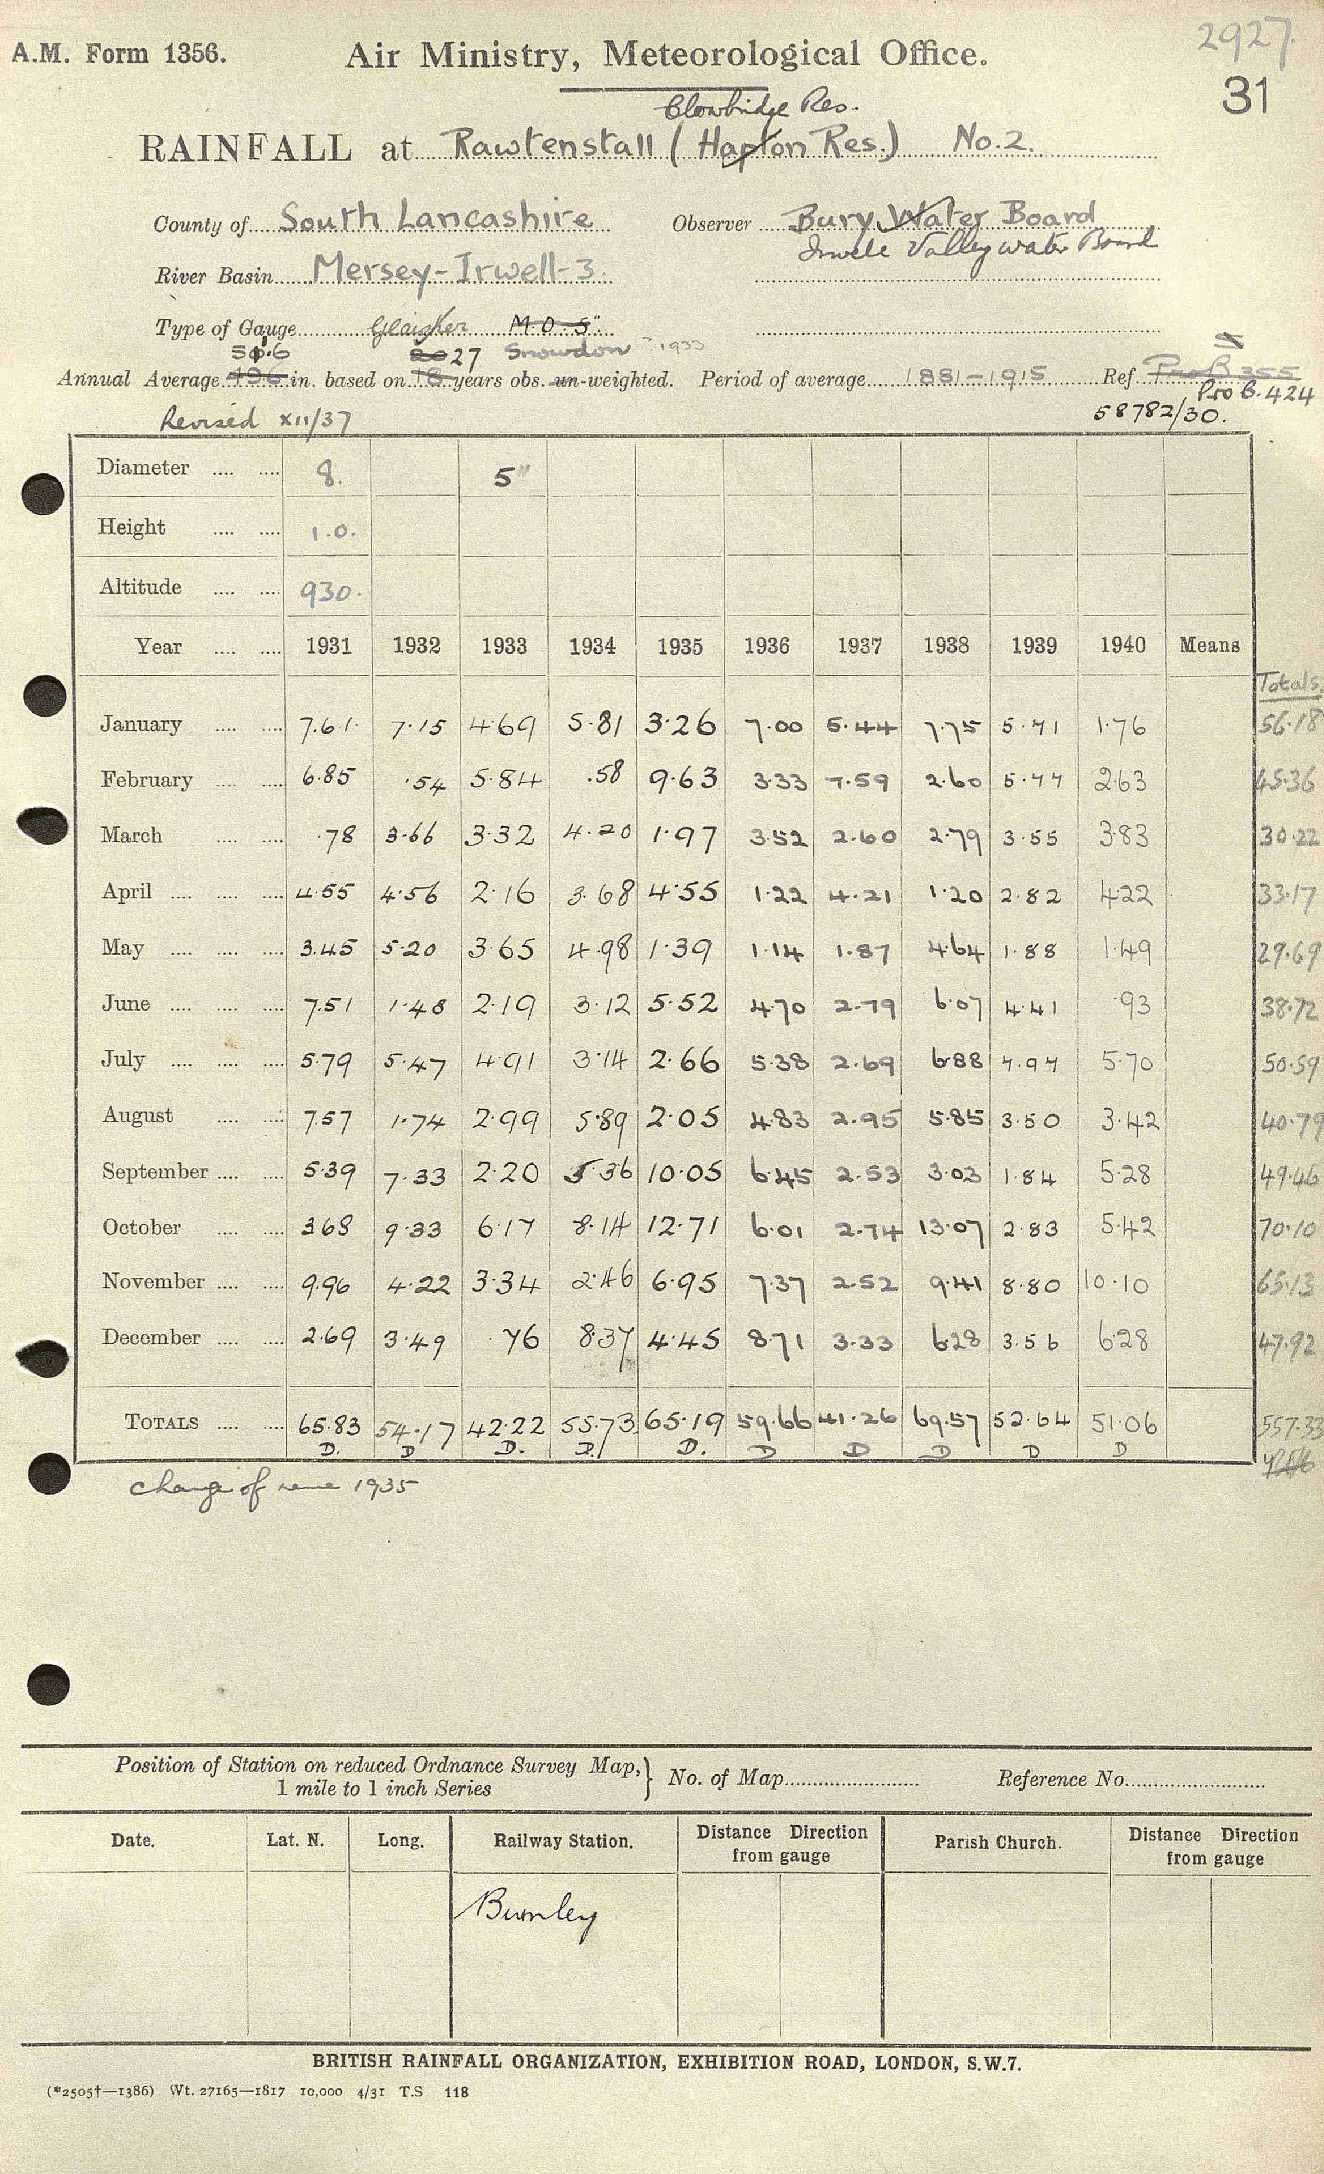 2927.
A.M. Form 1356.
Air Ministry, Meteorological Office.
31
Clowbridge Res.
RAINFALL at Rawtenstall (Hapton Res.) No. 2.
County of South Lancashire Observer Bury Water Board
Irwell Valley water Board
River Basin Mersey-Irwell-3.
Type of Gauge Glaisher M.O. 5".
Snowdon - 1933
27
Annual Average in. based on 18 years obs. un-weighted. Period of average 1881-1915 Ref. Pro B 355
Pro B. 424
Revised XII/37
58782/30.
Diameter .... .... 8. 5"
Height .... .... 1.0.
Altitude .... .... 930.
Year .... .... 1931 1932 1933 1934 1935 1936 1937 1938 1939 1940 Means
Totals.
January .... .... 7.61 7.15 4.69 5.81 3.26 7.00 5.44 7.75 5.71 1.76 56.18
February .... .... 6.85 .54 5.84 .58 9.63 3.33 7.59 2.60 5.77 2.63 45.36
March .... .... .78 3.66 3.32 4.20 1.97 3.52 2.60 2.79 3.55 3.83 30.22
April .... .... .... 4.55 4.56 2.16 3.68 4.55 1.22 4.21 1.20 2.82 4.22 33.17
May .... .... .... 3.45 5.20 3.65 4.98 1.39 1.14 1.87 4.64 1.88 1.49 29.69
June .... .... .... 7.51 1.48 2.19 3.12 5.52 4.70 2.79 6.07 4.41 .93 38.72
July .... .... .... 5.79 5.47 4.91 3.14 2.66 5.38 2.69 6.88 7.97 5.70 50.59
August .... .... 7.57 1.74 2.99 5.89 2.05 4.83 2.95 5.85 3.50 3.42 40.79
September .... .... 5.39 7.33 2.20 5.36 10.05 6.45 2.53 3.03 1.84 5.28 49.46
October .... .... 3.68 9.33 6.17 8.14 12.71 6.01 2.74 13.07 2.83 5.42 70.10
November .... .... 9.96 4.22 3.34 2.46 6.95 7.37 2.52 9.41 8.80 10.10 65.13
December .... .... 2.69 3.49 .76 8.37 4.45 8.71 3.33 6.28 3.56 6.28 47.92
TOTALS .... .... 65.83 54.17 42.22 55.73 65.19 59.66 41.26 69.57 52.64 51.06 557.33
D. D D. D. D. D D D D D
change of 1935
Position of Station on reduced Ordnance Survey Map,
1 mile to 1 inch Series
No. of Map
Reference No.
Date. Lat. N. Long. Railway Station. Distance from gauge Direction Parish Church. Distance from gauge Direction
Burnley
BRITISH RAINFALL ORGANIZATION, EXHIBITION ROAD, LONDON, S.W.7.
(*2505†—1386) Wt. 27165—1817 10,000 4/31 T.S 118